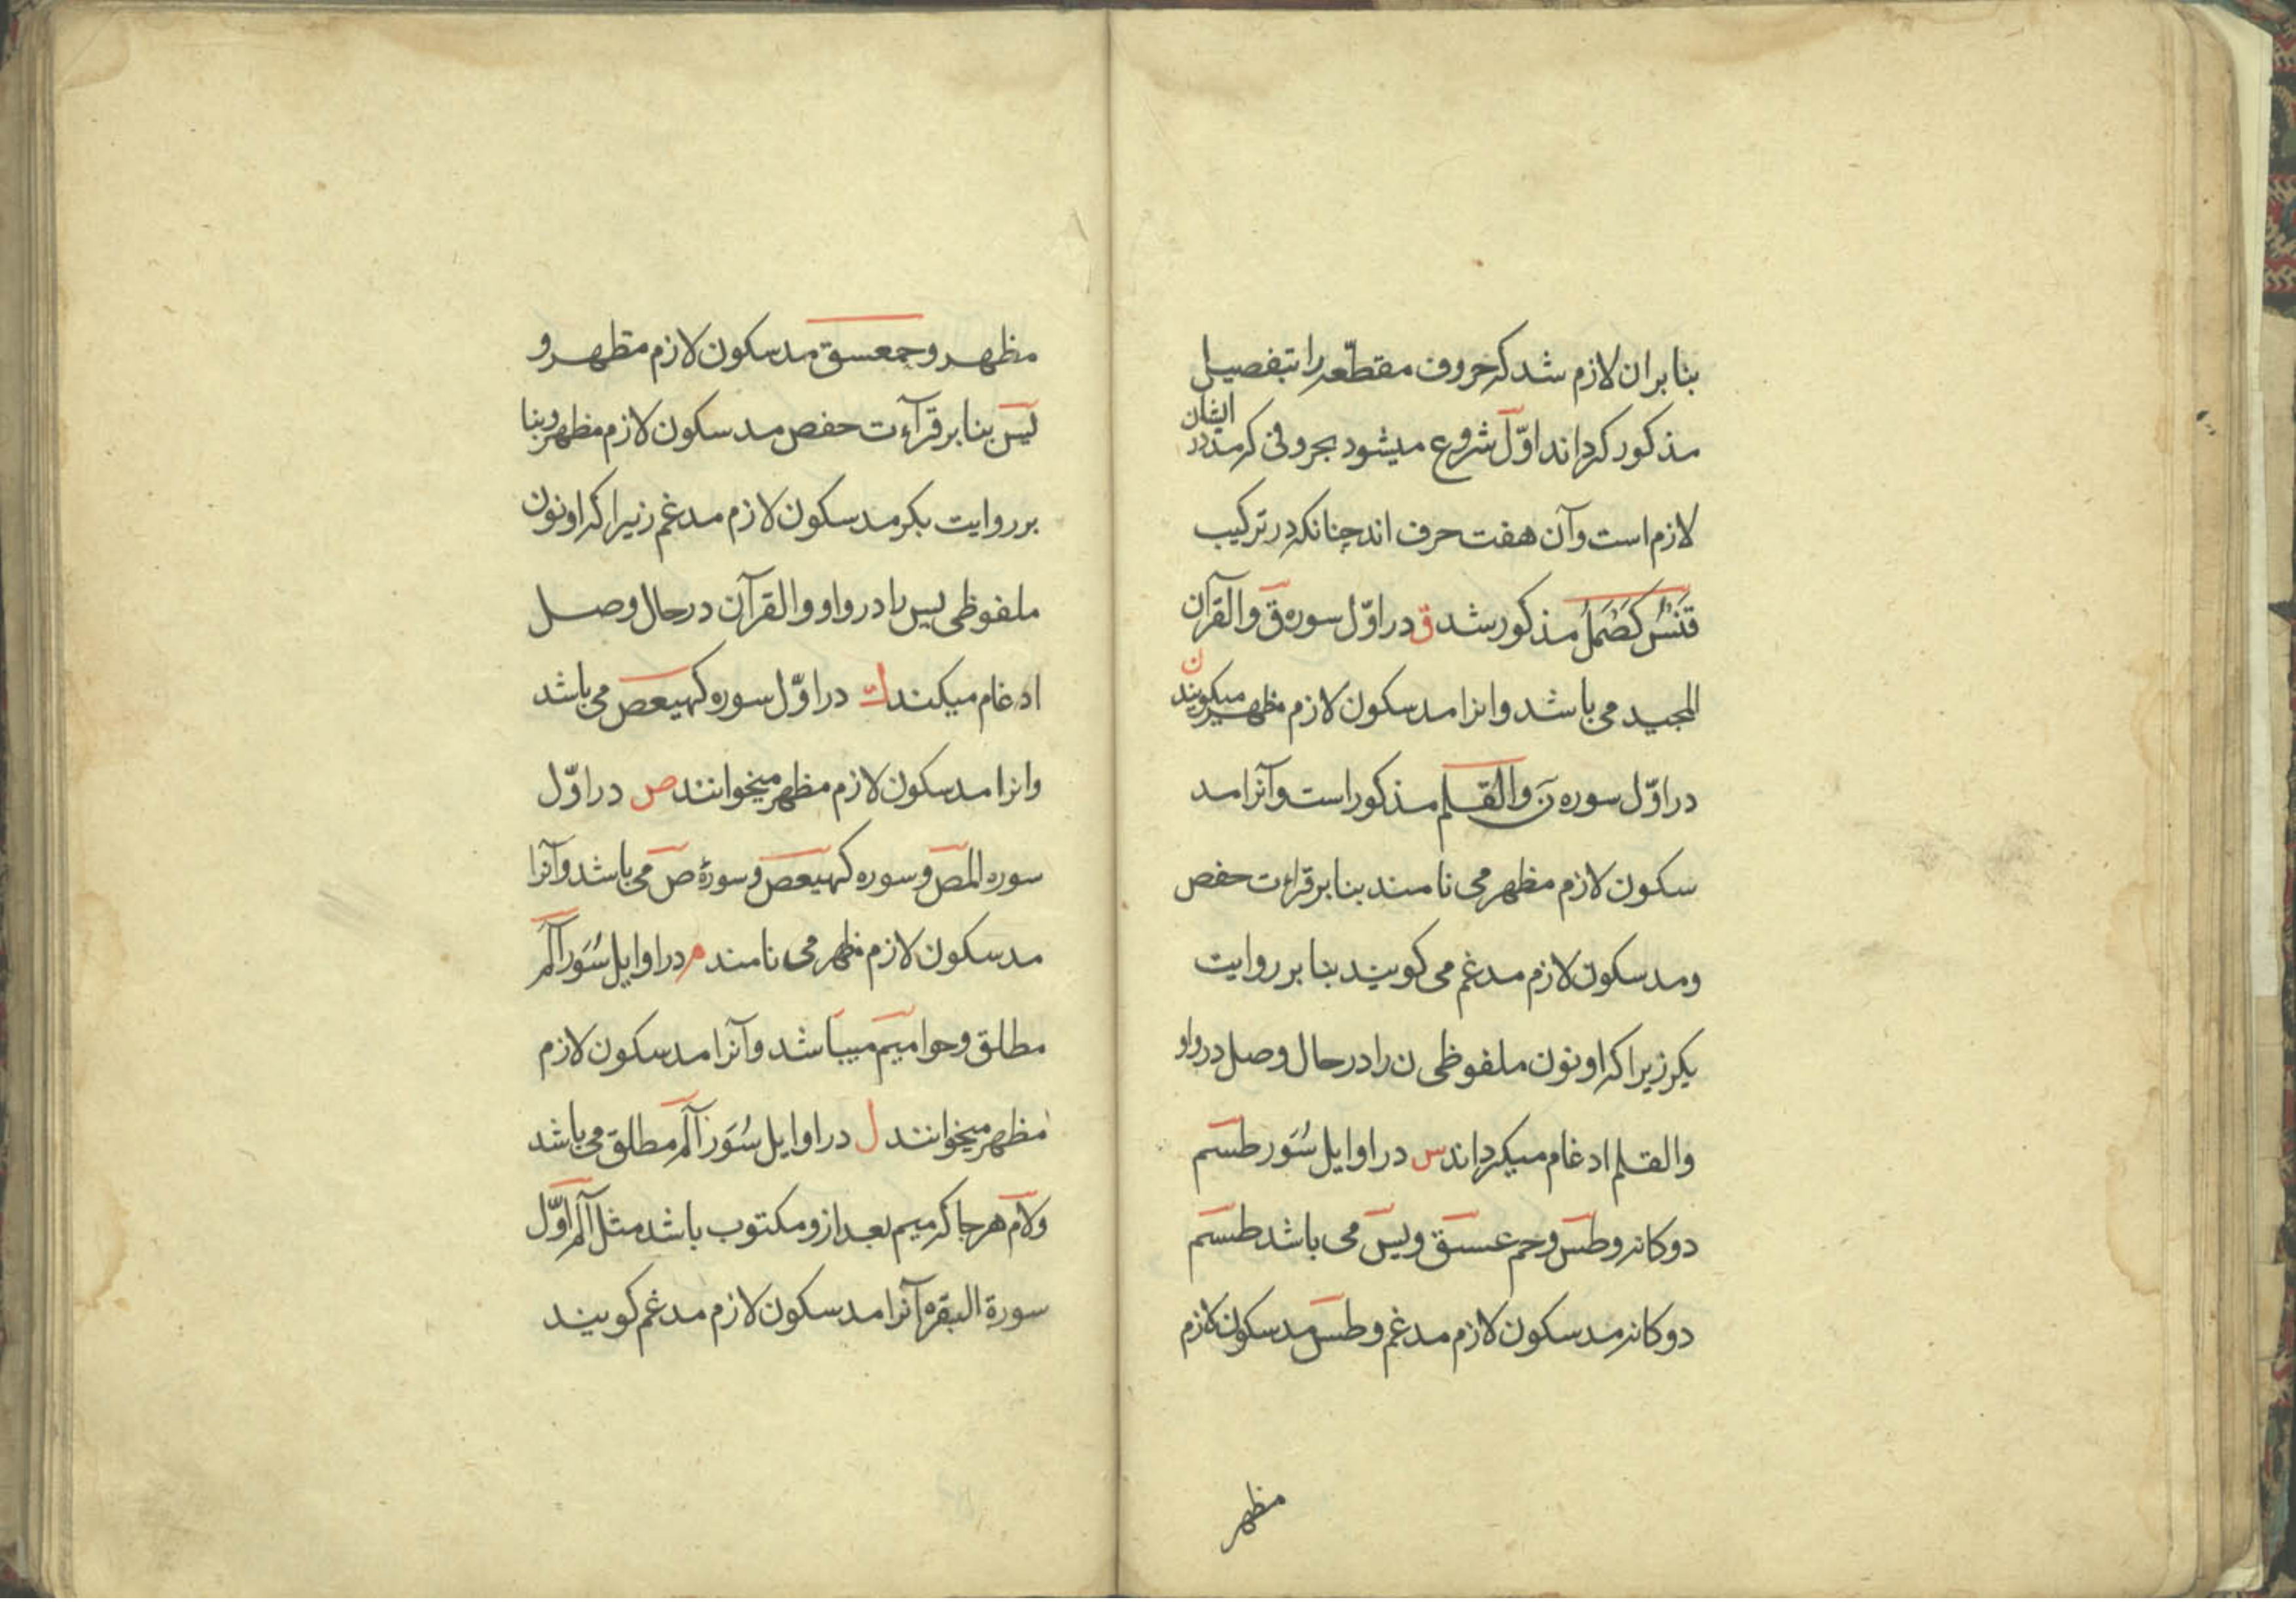 بنا بران لازم شد که حروف مقطّعه را بتفصیل
مذکور کرداند اوّل شروع میشود بحروفی که مد در ایشان
لازم است و آن هفت حرف اند چنانکه در ترکیب
قَنَسُ کَصَمَلُ مذکور شد ق در اوّل سوره قٓ والقرآن
المجید می باشد وانرا مد سکون لازم مظهر میکویند ن
در اوّل سوره نٓ والقلم مذکور است وآنرا مد
سکون لازم مظهر می نامند بنا بر قراءت حفص
ومد سکون لازم مدغم می کویند بنا بر روایت
بکر زیرا که او نون ملفوظی ن را در حال وصل در واو
والقلم ادغام میکرداند س در اوایل سُوَر طسٓم
دوکانه وطسٓ وحم عسٓق ویسٓ می باشد طسٓم
دوکانه مد سکون لازم مدغم وطسٓ مد سکون لازم
مظهر
مظهر وحمعسق مد سکون لازم مظهر و
یسٓ بنا بر قرآءت حفص مد سکون لازم مظهر وبنا
بر روایت بکر مد سکون لازم مدغم زیرا که او نون
ملفوظی یس را در واو والقرآن در حال وصل
ادغام میکند ك در اوّل سوره کهیعص می باشد
وانرا مد سکون لازم مظهر میخوانند ص در اوّل
سوره المٓصٓ وسوره کهیعصٓ وسورهٔ صٓ می باشد وآنرا
مد سکون لازم مظهر می نامند م در اوایل سُوَر آلمٓ
مطلق وحوامیم میباشد وآنرا مد سکون لازم
مظهر میخوانند ل در اوایل سُوَر آلمٓ مطلق می باشد
ولام هر جا که میم بعد ازو مکتوب باشد مثل آلمٓ اوّل
سورة البقره آنرا مد سکون لازم مدغم کویند